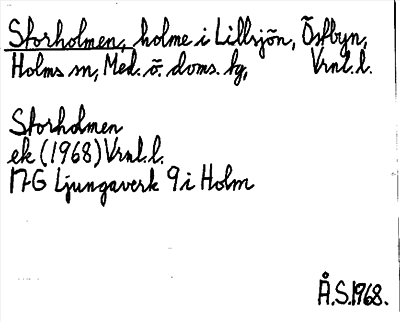 Storholmen, holme i Lillsjön, Östbyn,
Holms sn, Med. ö. doms. tg, Vrnl. l.
Storholmen
ek (1968) Vrnl. l.
17G Ljungaverk 9 i Holm
Å.S. 1968.